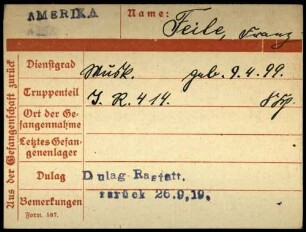 AMERIKA
Name: Feile, Franz
Aus der Gefangenschaft zurück
Dienstgrad Musk. geb. 9.4.99.
Truppenteil J. R. 414. 8 Kp.
Ort der Ge-
fangennahme
Letztes Gefan-
genenlager
Dulag Dulag Rastatt.
zurück 26.9.19.
Bemerkungen
Form. 587.